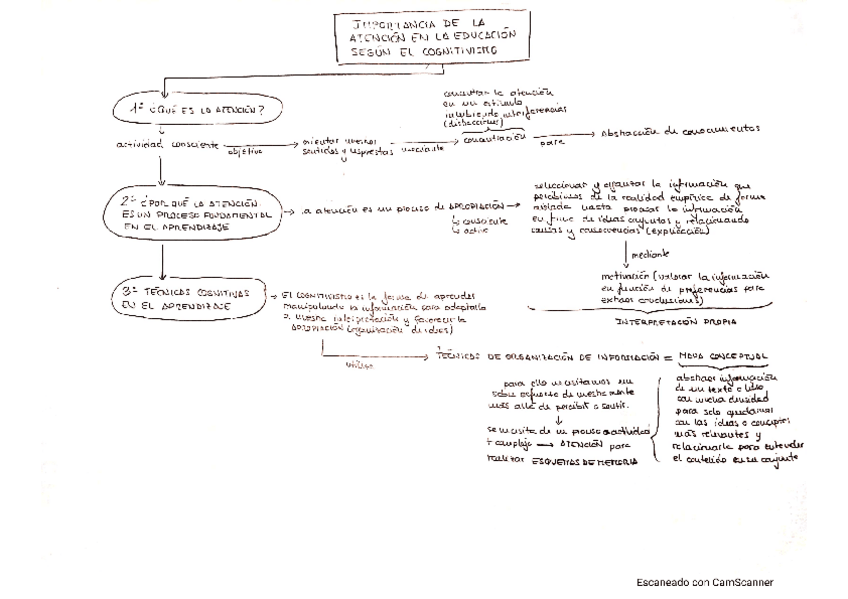 IMPORTANCIA DE LA
ATENCIÓN EN LA EDUCACIÓN
SEGÚN EL COGNITIVISMO
1º ¿QUÉ ES LA ATENCIÓN?
actividad consciente
objetivo
orientar nuestros
sentidos y respuestas
mediante
concentrar la atención
en un estímulo
inhibiendo interferencias
(distracciones)
concentración
para
Abstracción de conocimientos
2º ¿POR QUÉ LA ATENCIÓN
ES UN PROCESO FUNDAMENTAL
EN EL APRENDIZAJE
La atención es un proceso de APROPIACIÓN
consciente
activo
seleccionar y organizar la información que
percibimos de la realidad empírica de forma
aislada hasta procesar la información
en forma de ideas conjuntas y relacionando
causas y consecuencias (explicación)
mediante
motivación (valorar la información
en función de preferencias para
extraer conclusiones)
INTERPRETACIÓN PROPIA
3º TÉCNICAS COGNITIVAS
EN EL APRENDIZAJE
El COGNITIVISMO es la forma de aprender
manipulando la información para adaptarla
a nuestra interpretación y favorecer la
APROPIACIÓN (organización de ideas)
utiliza
TÉCNICAS DE ORGANIZACIÓN DE INFORMACIÓN = MAPA CONCEPTUAL
para ello necesitamos un
sobre esfuerzo de nuestra mente
más allá de percibir o sentir.
se necesita de un proceso o actividad
+ complejo → ATENCIÓN para
realizar ESQUEMAS DE MEMORIA
abstraer información
de un texto o libro
con mucha densidad
para solo quedarnos
con las ideas o conceptos
más relevantes y
relacionarlo para entender
el contenido en su conjunto
Escaneado con CamScanner